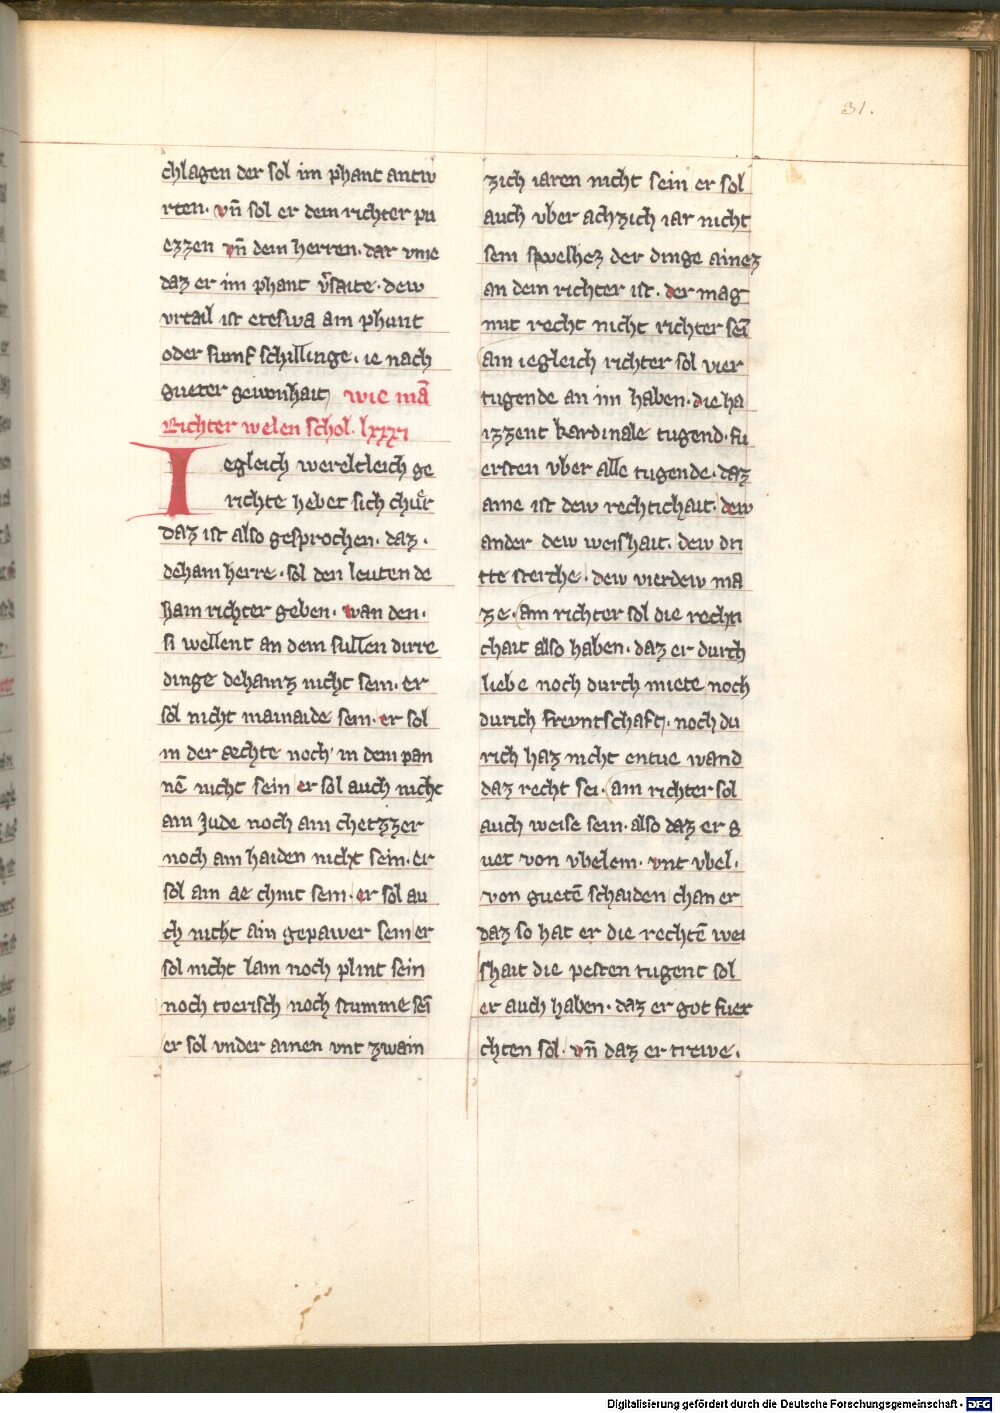 31.
chlagen der sol im phant antw
rten. vn̄ sol er dem richter pu
ezzen vn̄ dem herren. dar vme
daz er im phant v̾saite. dew
vrtail ist eteswa ain phunt
oder fumf schillinge. ie nach
gueter gewonhait, wie mā
Richter welen schol. lxxxi
Iegleich wereltleich ge
richte hebet sich chuͤr
daz ist also gesprochen. daz.
dehain herre. sol den leuten de
hain richter geben. wan den.
si wellent an dem sullen dirre
dinge dehainz nicht sein. er
sol nicht mainaide sein. er sol
in der aechte noch in dem pan
nē nicht sein er sol auch nicht
ain Jude noch ain chetzzer
noch ain haiden nicht sein. er
sol ain ae chint sein. er sol au
ch nicht ain gepawer sein er
sol nicht lam noch plint sein
noch toerisch noch stumme sēi
er sol vnder ainen vnt zwain
zich iaren nicht sein er sol
auch vber achzich iar nicht
sein swelhez der dinge ainez
an dem richter ist. der mag
mit recht nicht richter sēi
ain iegleich richter sol vier
tugende an im haben. die ha
izzent kardinale tugend. fu
ersten vber alle tugende. daz
aine ist dew rechtichait. dew
ander dew weishait. dew dri
tte sterche. dew vierdew ma
ze. ain richter sol die rechti
chait also haben. daz er durch
liebe noch durch miete noch
durich frevntschaft. noch du
rich haz nicht entue wand
daz recht sei. ain richter sol
auch weise sein. also daz er g
uet von vbelem. vnt vbel.
von guetē schaiden chan er
daz so hat er die rechtē wei
shait die pesten tugent sol
er auch haben. daz er got fuer
chten sol. vn̄ daz er trewe.
Digitalisierung gefördert durch die Deutsche Forschungsgemeinschaft - DFG